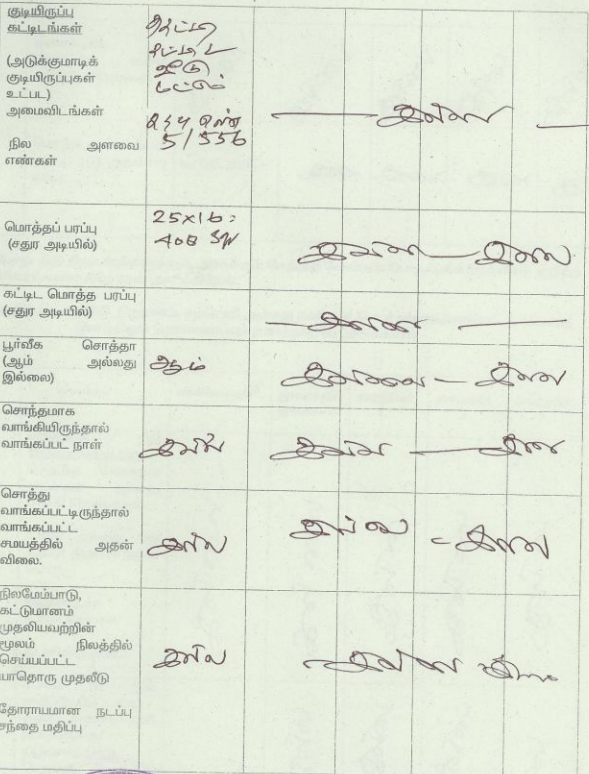 குடியிருப்பு
கட்டிடங்கள்
(அடுக்குமாடிக்
குடியிருப்புகள்
உட்பட)
அமைவிடங்கள்
இல்லை
நில அளவை
எண்கள்
5/556
மொத்தப் பரப்பு
(சதுர அடியில்)
25x16=
408
இல்லை இல்லை
கட்டிட மொத்த பரப்பு
(சதுர அடியில்)
இல்லை
பூர்வீக சொத்தா
(ஆம் அல்லது
இல்லை)
ஆம் இல்லை இல்லை
சொந்தமாக
வாங்கியிருந்தால்
வாங்கப்பட் நாள்
இல்லை இல்லை இல்லை
சொத்து
வாங்கப்பட்டிருந்தால்
வாங்கப்பட்ட
சமயத்தில் அதன்
விலை.
இல்லை இல்லை இல்லை
நிலமேம்பாடு,
கட்டுமானம்
முதலியவற்றின்
மூலம் நிலத்தில்
செய்யப்பட்ட
யாதொரு முதலீடு
இல்லை இல்லை இல்லை
தோராயமான நடப்பு
சந்தை மதிப்பு